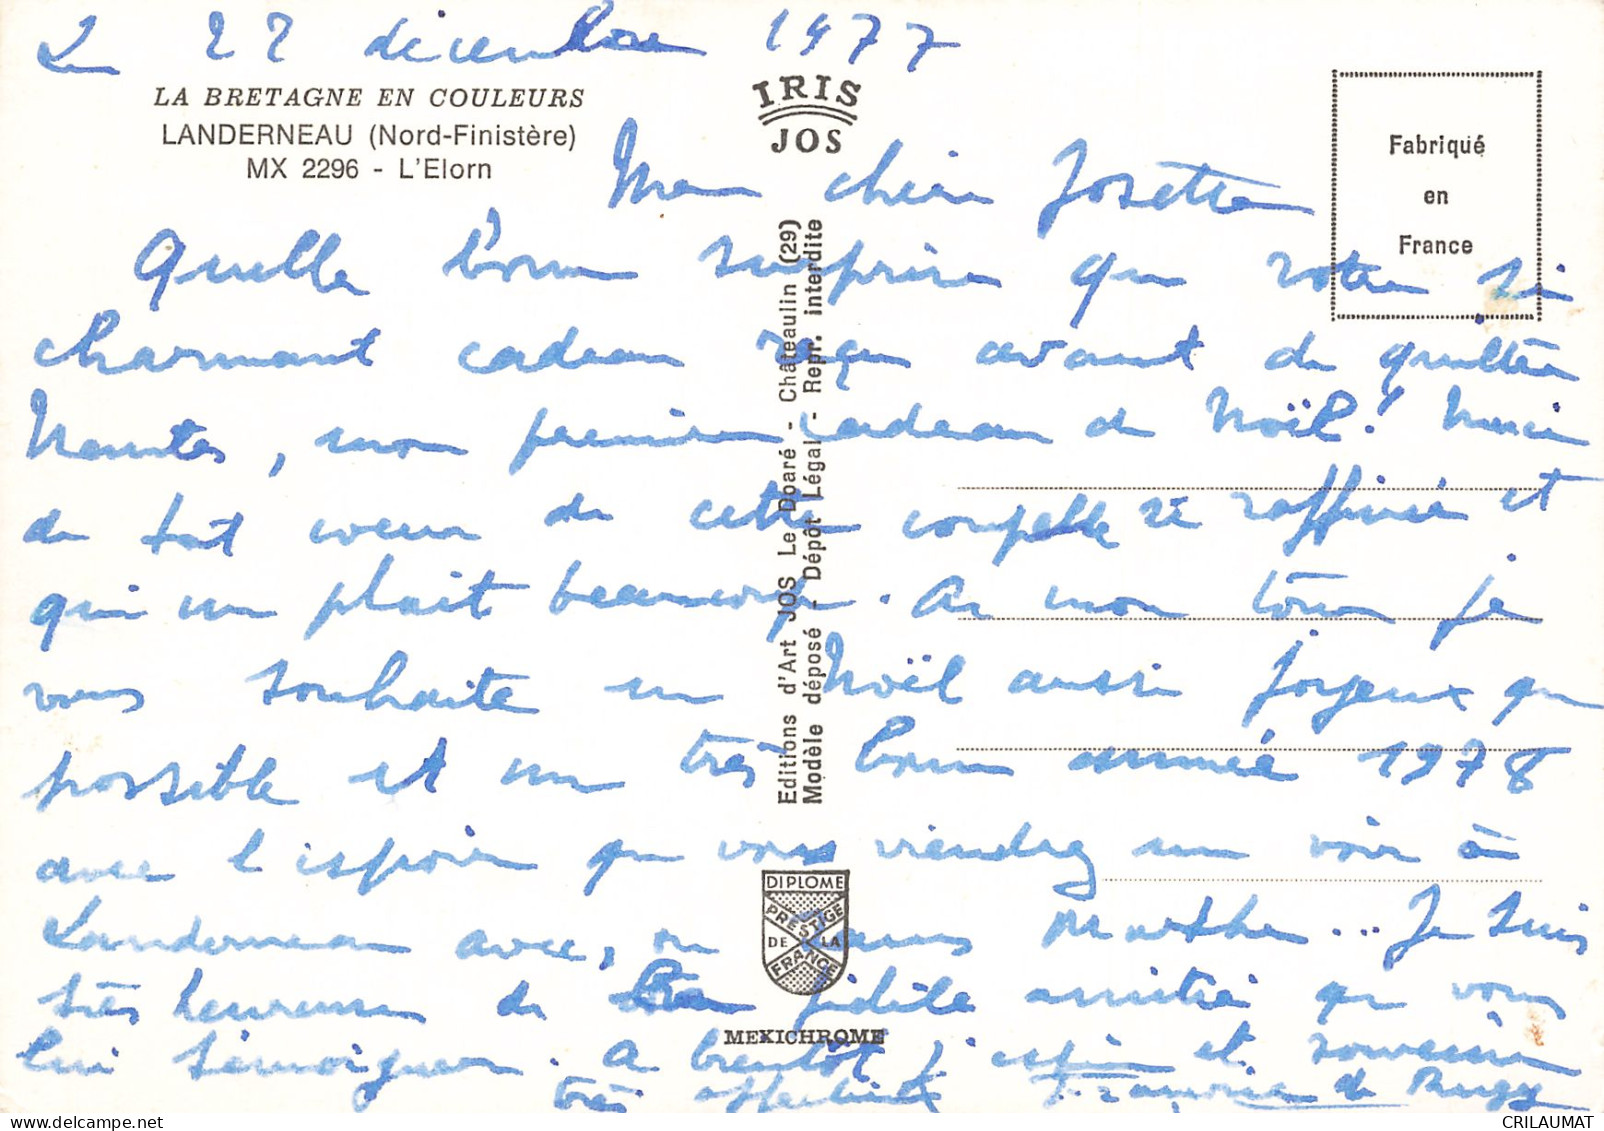 Le 22 décembre 1977
LA BRETAGNE EN COULEURS
LANDERNEAU (Nord-Finistère)
MX 2296 - L'Elorn
IRIS
JOS
Fabriqué
en
France
Ma chère Josette
Quelle bonne surprise que votre si
charmant cadeau reçu avant de quitter
Nantes, mon premier cadeau de Noël! Merci
de tout coeur de cette coupelle si raffinée et
qui me plait beaucoup. A mon tour je
vous souhaite un Noël aussi joyeux que
possible et une très bonne année 1978
avec l'espoir que vous viendrez me voir à
Landerneau avec, ou sans Marthe... Je suis
très heureuse de la fidèle amitié que vous
lui témoignez. A bientôt j'espère et souvenir
très affectueux Françoise de Rugy
Editions d'Art JOS Le Doaré - Châteaulin (29)
Modèle déposé - Dépôt Légal - Repr. interdite
DIPLOME
PRESTIGE
DE LA
FRANCE
MEXICHROME
CRILAUMAT